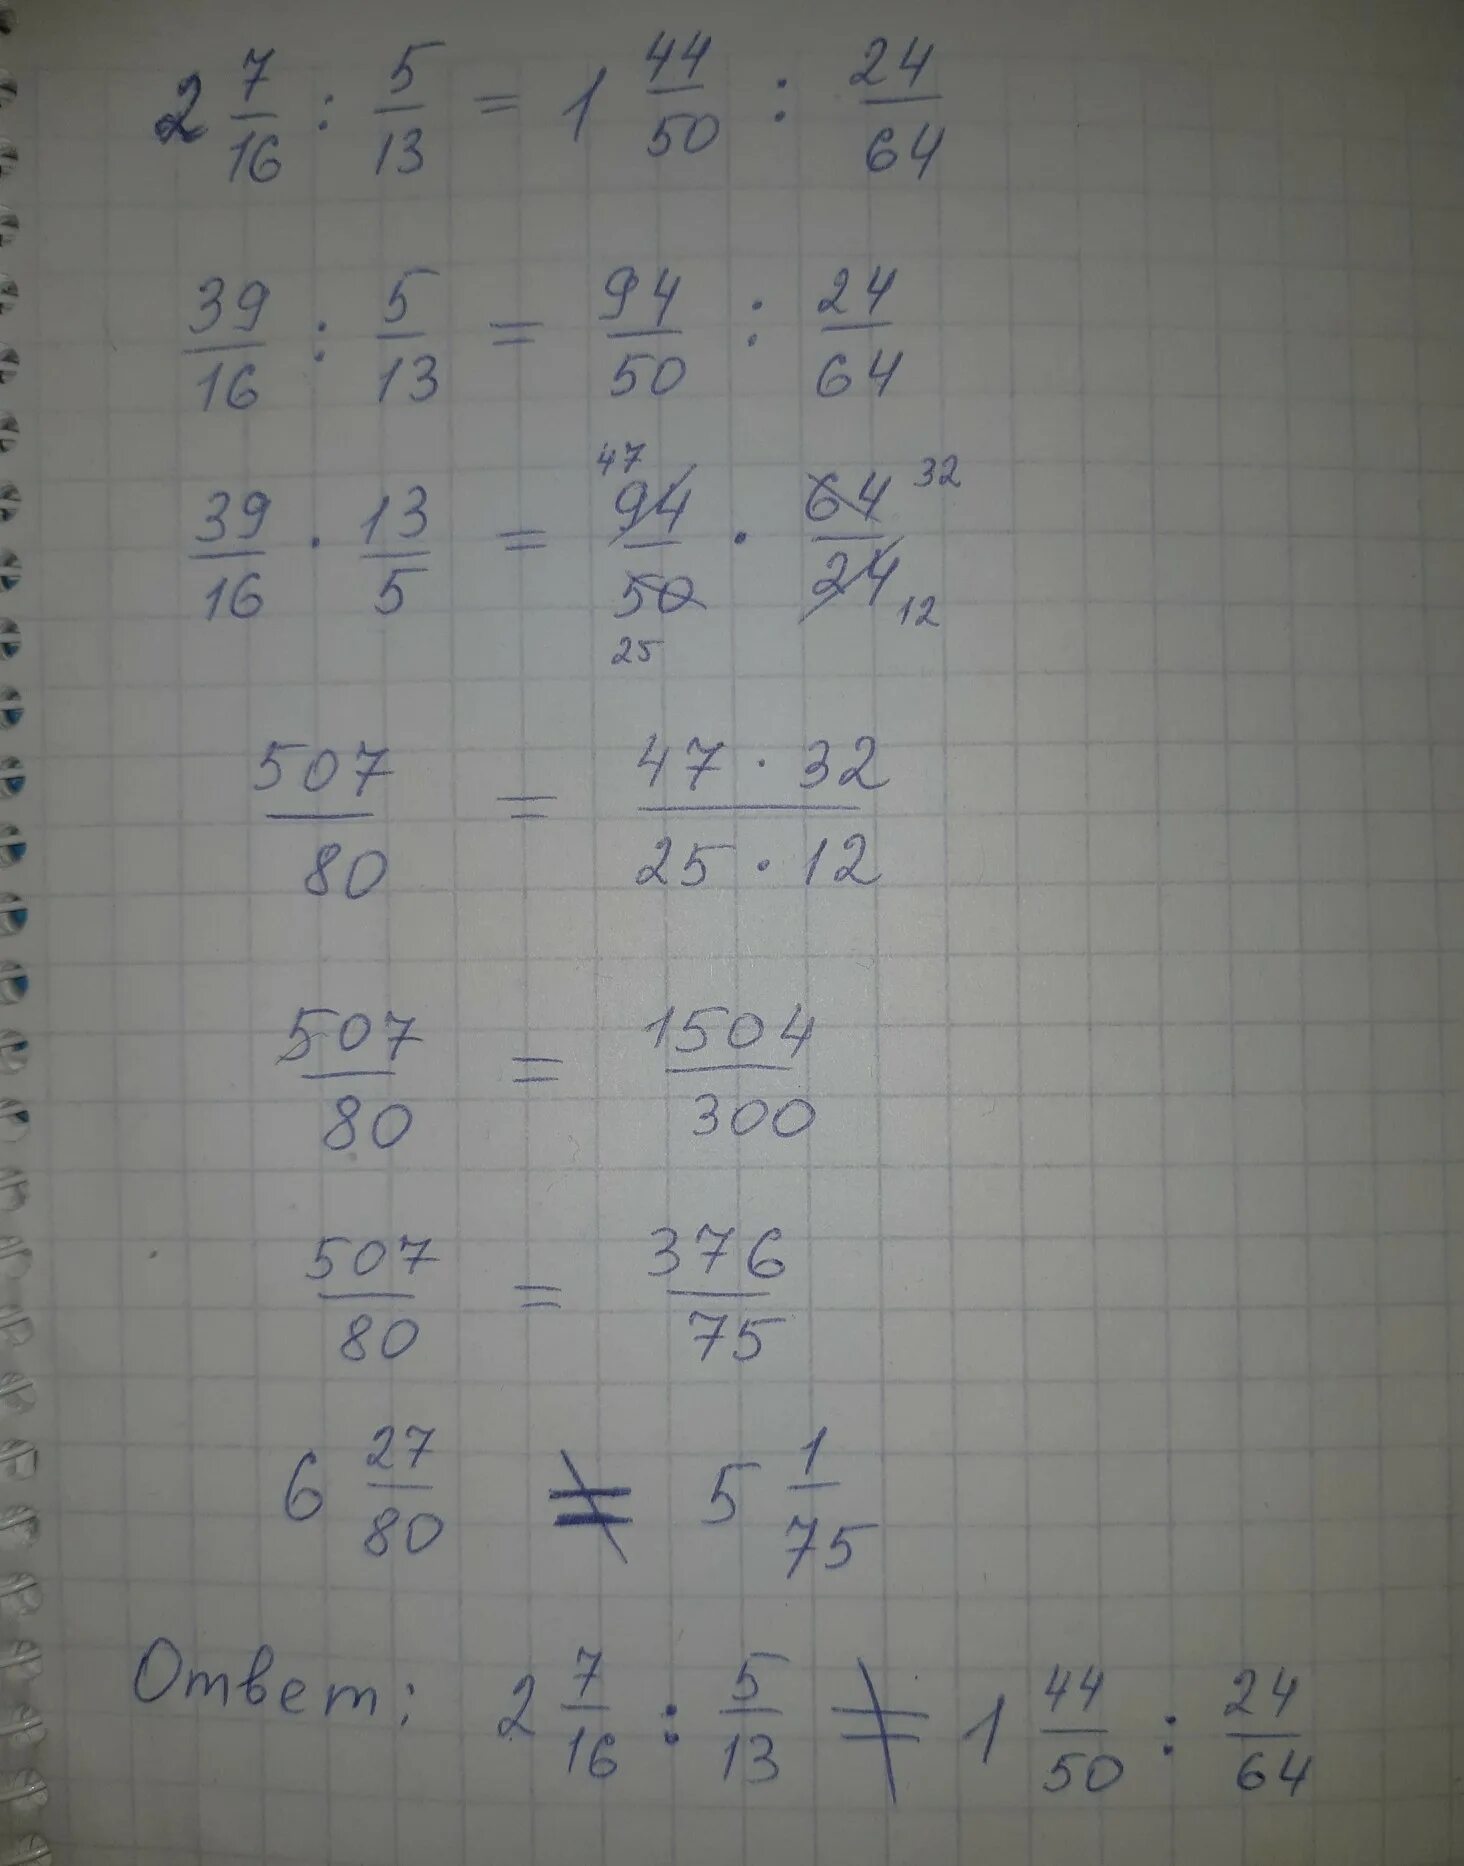 2 7/16 : 5/13 = 1 44/50 : 24/64
39/16 : 5/13 = 94/50 : 24/64
47 32
39/16 · 13/5 = 94/50 · 64/24
25 12
507/80 = 47 · 32/25 · 12
507/80 = 1504/300
507/80 = 376/75
6 27/80 ≠ 5 1/75
Ответ: 2 7/16 : 5/13 ≠ 1 44/50 : 24/64